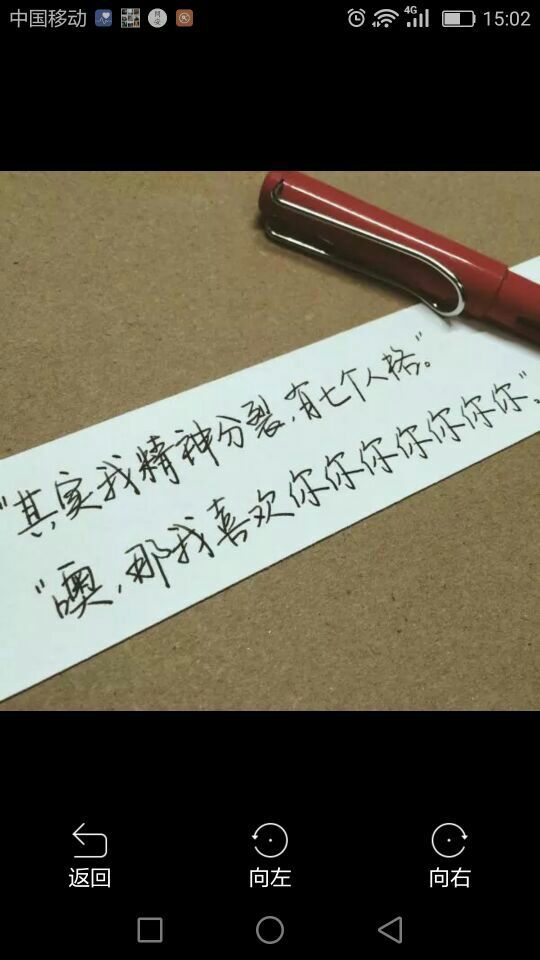 中国移动 4G 15:02
"其实我精神分裂,有七个人格。"
"噢,那我喜欢你你你你你你你"。
返回 向左 向右